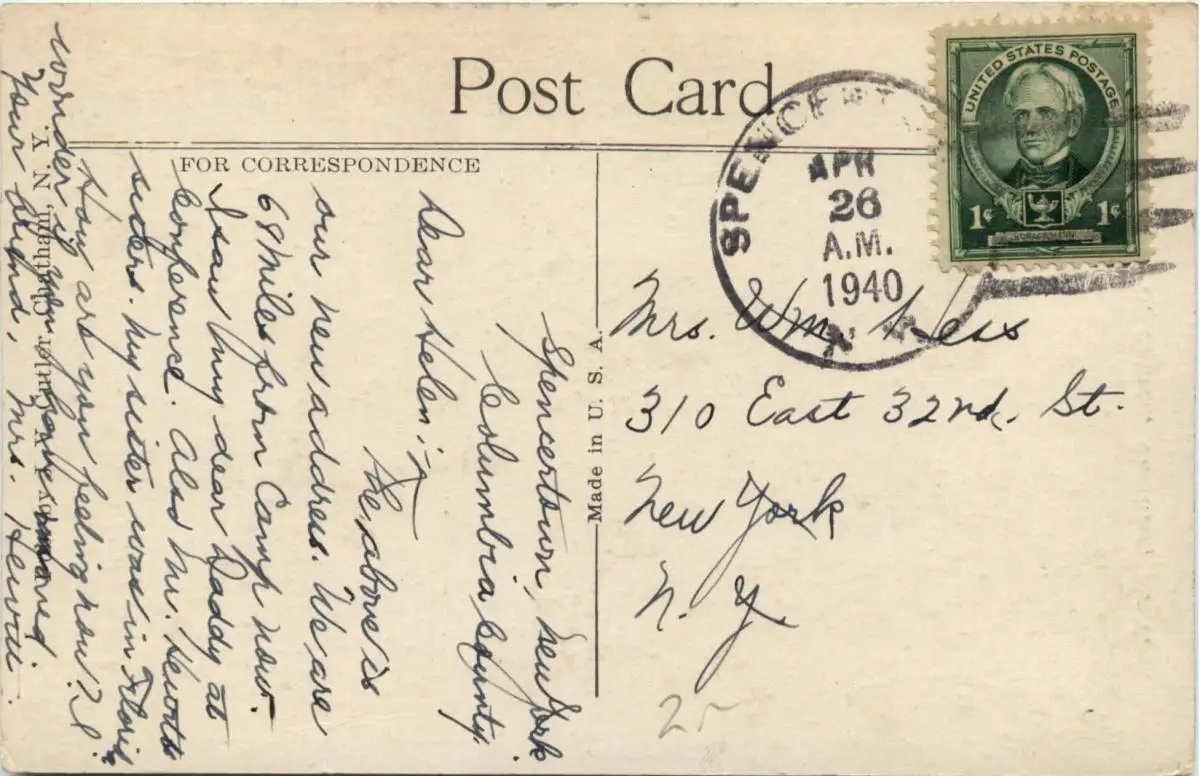 Post Card
FOR CORRESPONDENCE
Made in U. S. A.
UNITED STATES POSTAGE
1¢ 1¢
HORACE MANN
SPENCERT
APR
26
A.M.
1940
N
Mrs. Wm. Hess
310 East 32nd. St.
New York
N. Y.
Spencertown, New York
Columbia County.
Dear Helen;
The above is
our new address. We are
68 Miles from Camp now.
I saw my dear Daddy at
Conference. Also Mr. Hewitts
sisters. My sister was in Florida
How are you feeling now? I
wonder if you have moved.
Your friend, Mrs. Hewitt.
Chatham, N. Y.